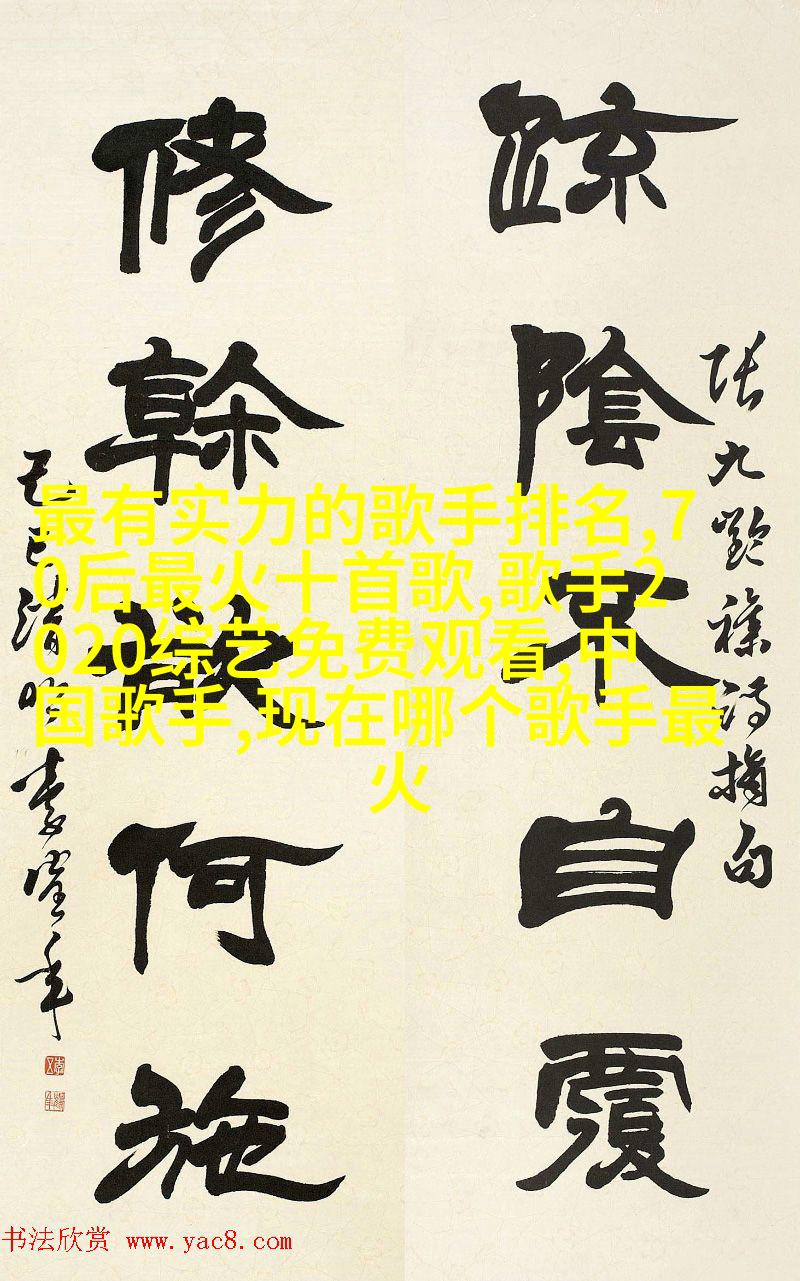 疏陰不自覆
張九齡雜詩摘句
修榦欲何施
己巳清明
最有实力的歌手排名,7
0后最火十首歌,歌手2
020综艺免费观看,中
国歌手,现在哪个歌手最
火
书法欣赏 www.yac8.com